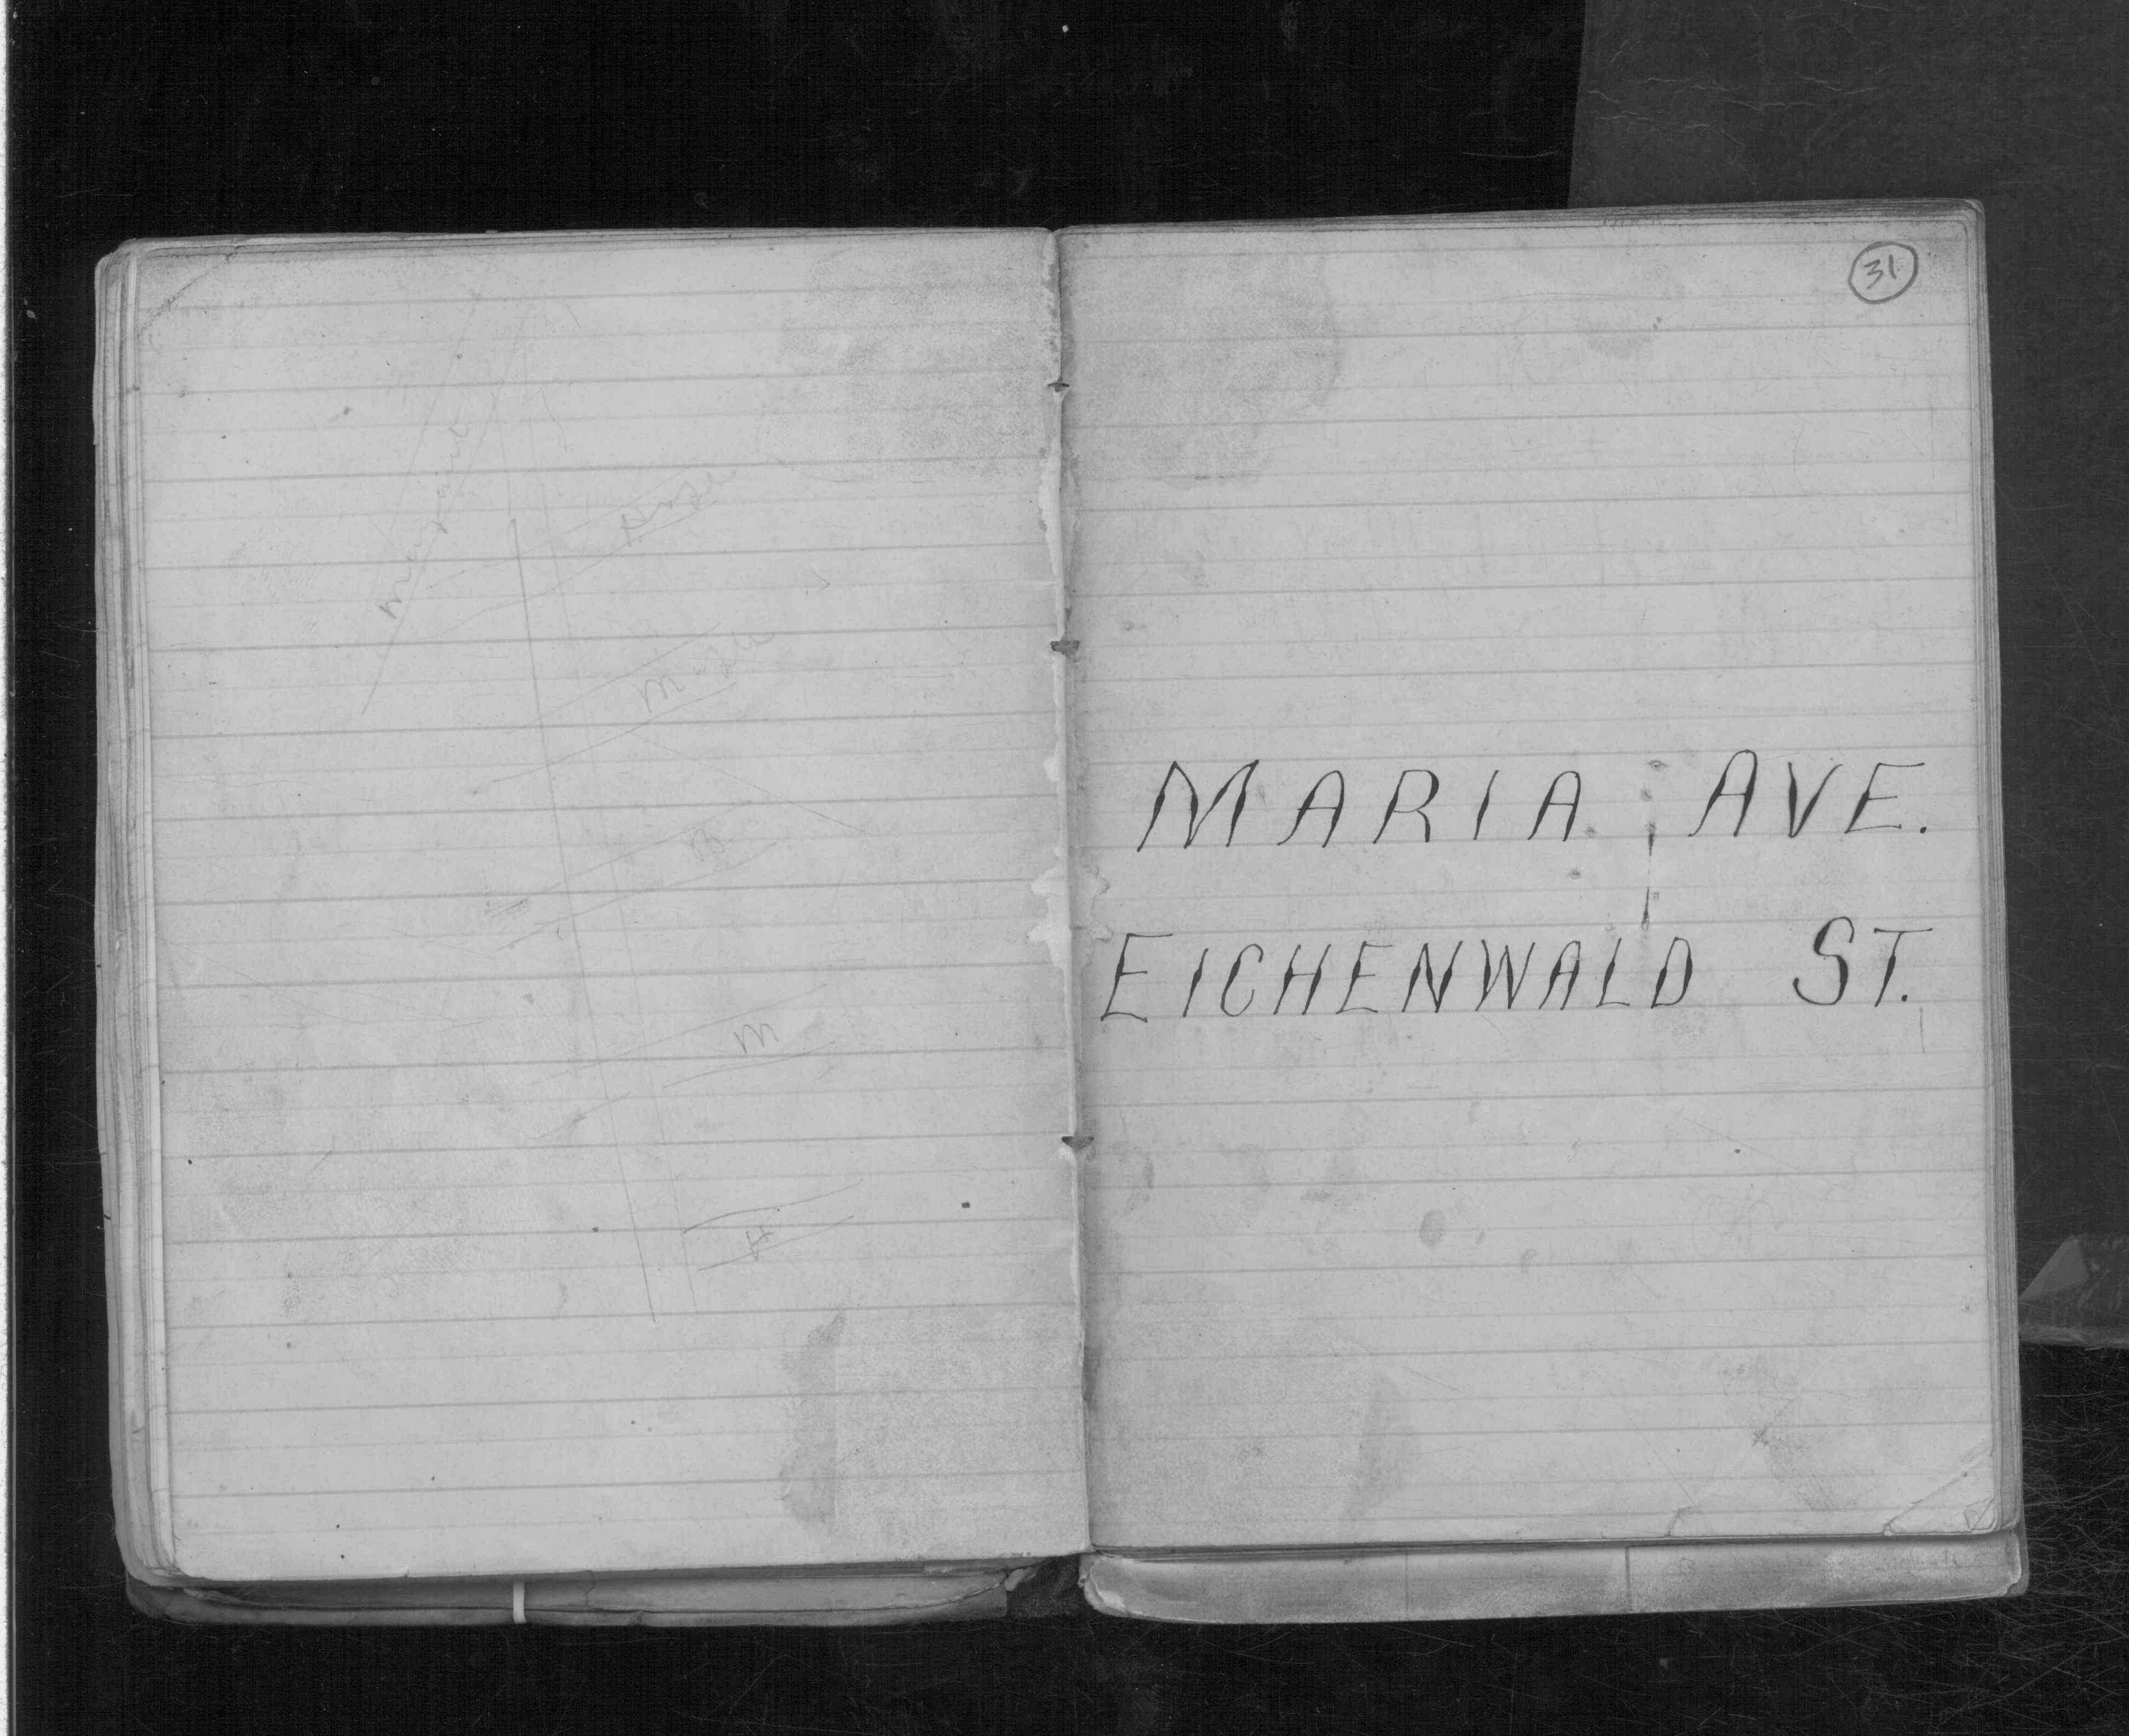 31
MARIA AVE.
EICHENWALD ST.
M